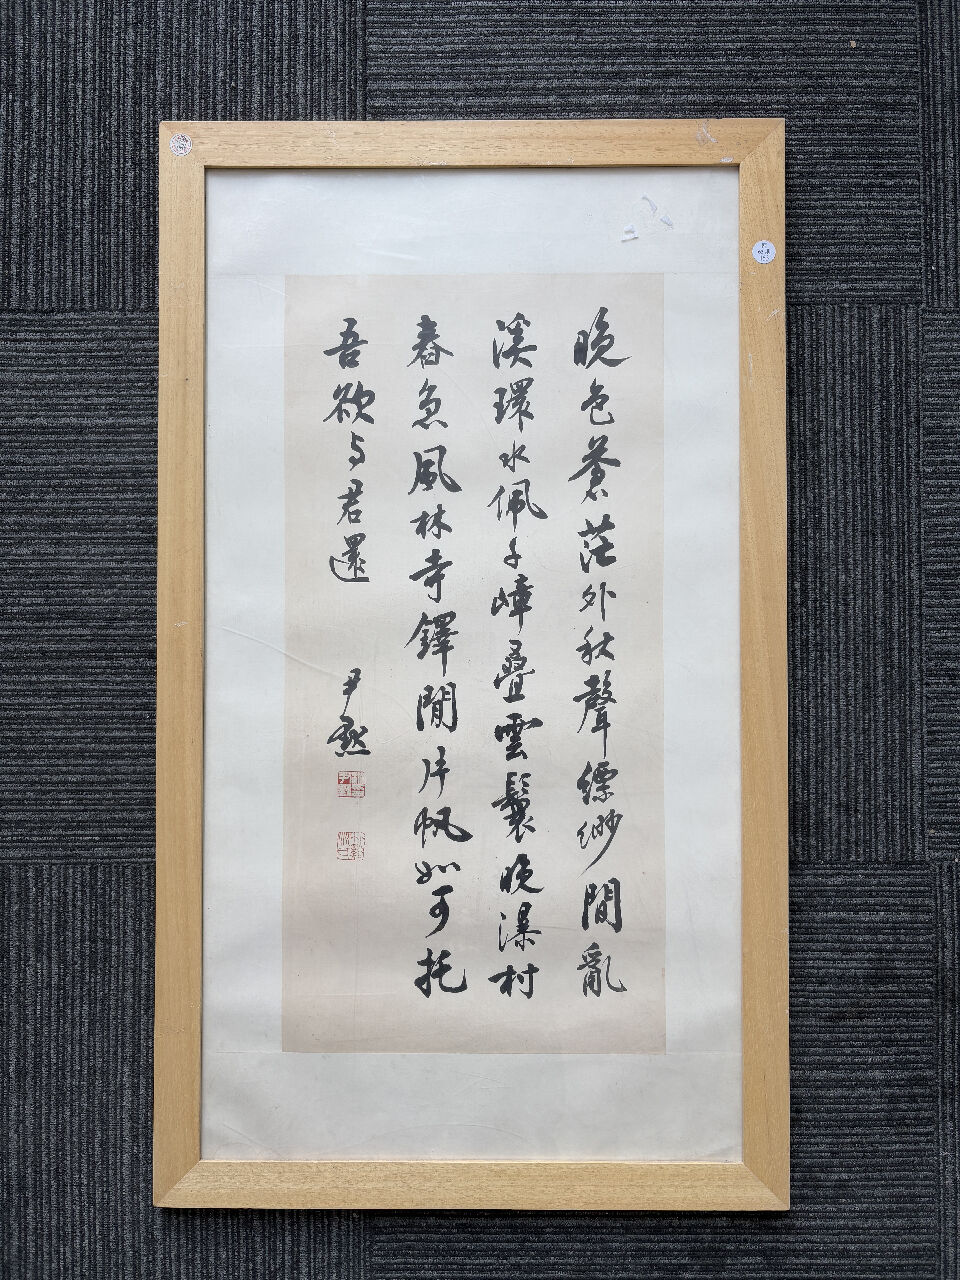 晚色蒼茫外秋聲縹緲間亂
溪環水佩千嶂疊雲鬟晚瀑村
舂急風林寺鐸閒片帆如可托
吾欲与君還
尹默